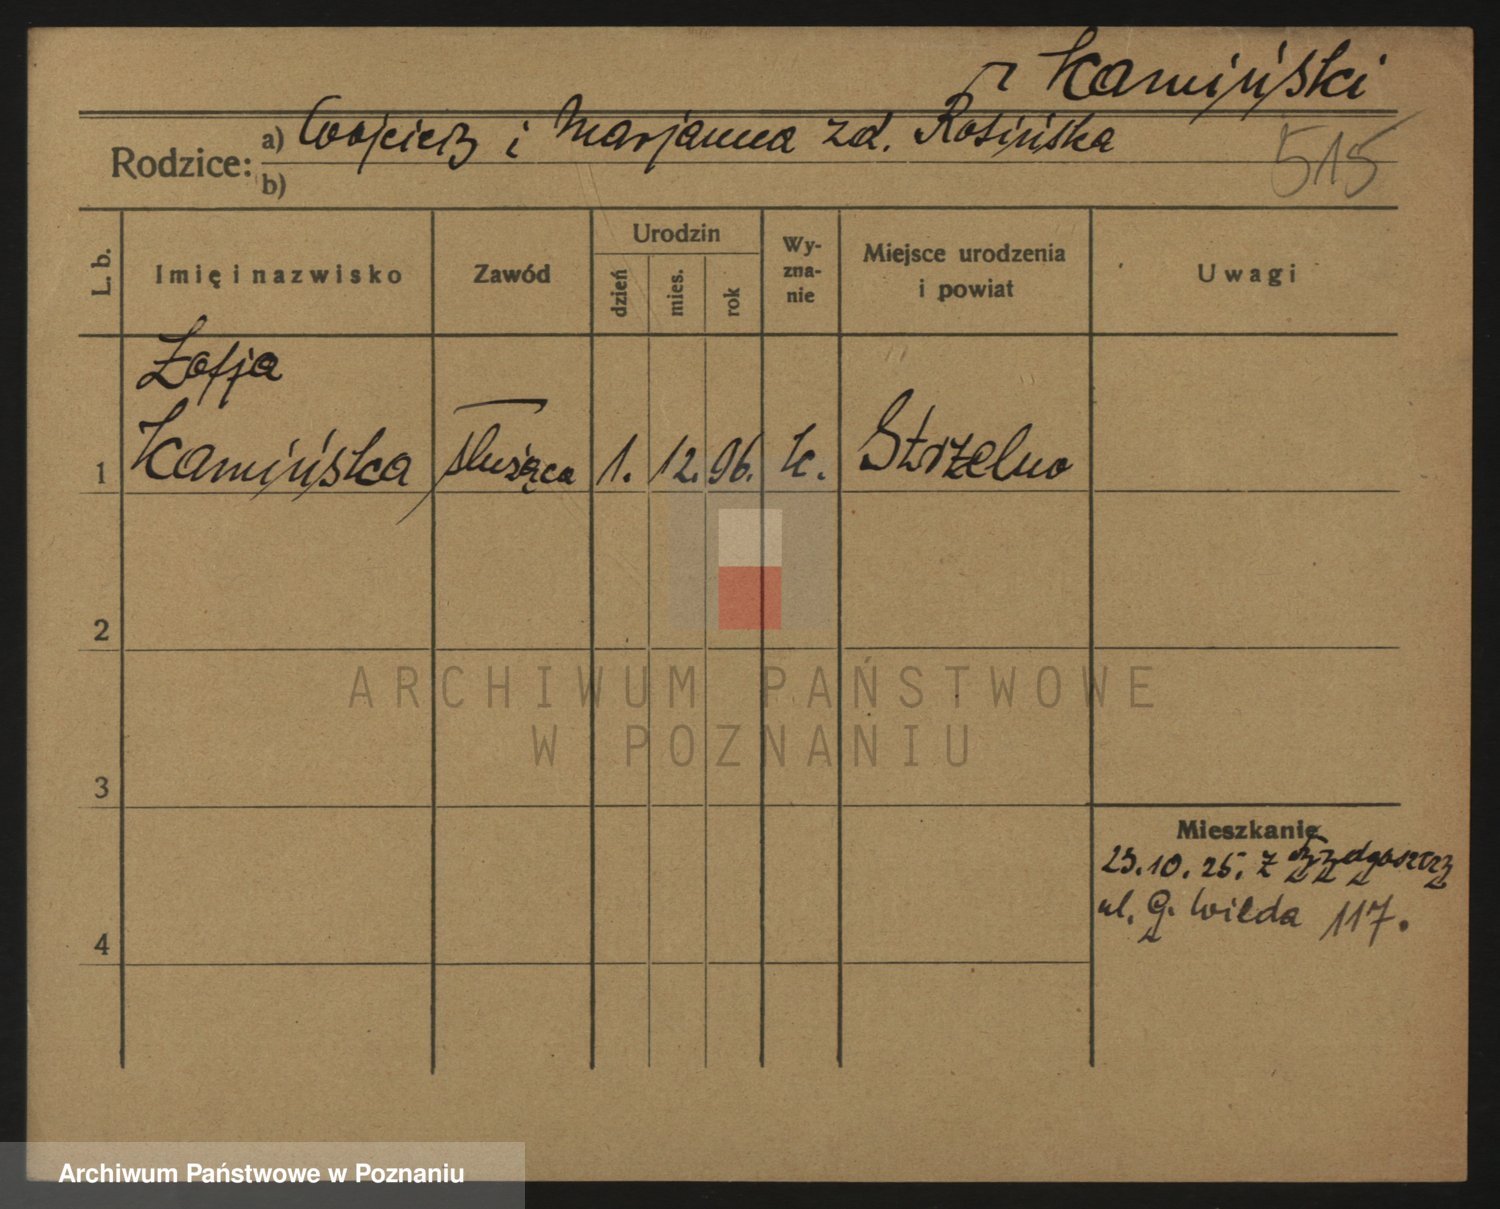 Kamiński
Rodzice: a) Wojciech i Marjanna zd. Rosińska
b)
515
L. b. Imię i nazwisko Zawód Urodzin dzień mies. rok Wy-zna-nie Miejsce urodzenia i powiat Uwagi
Zofja
1 Kamińska służąca 1. 12. 96. k. Strzelno
2
ARCHIWUM PAŃSTWOWE
W POZNANIU
3
Mieszkanie
23.10.25. z Bydgoszczy
ul. G. Wilda 117.
4
Archiwum Państwowe w Poznaniu